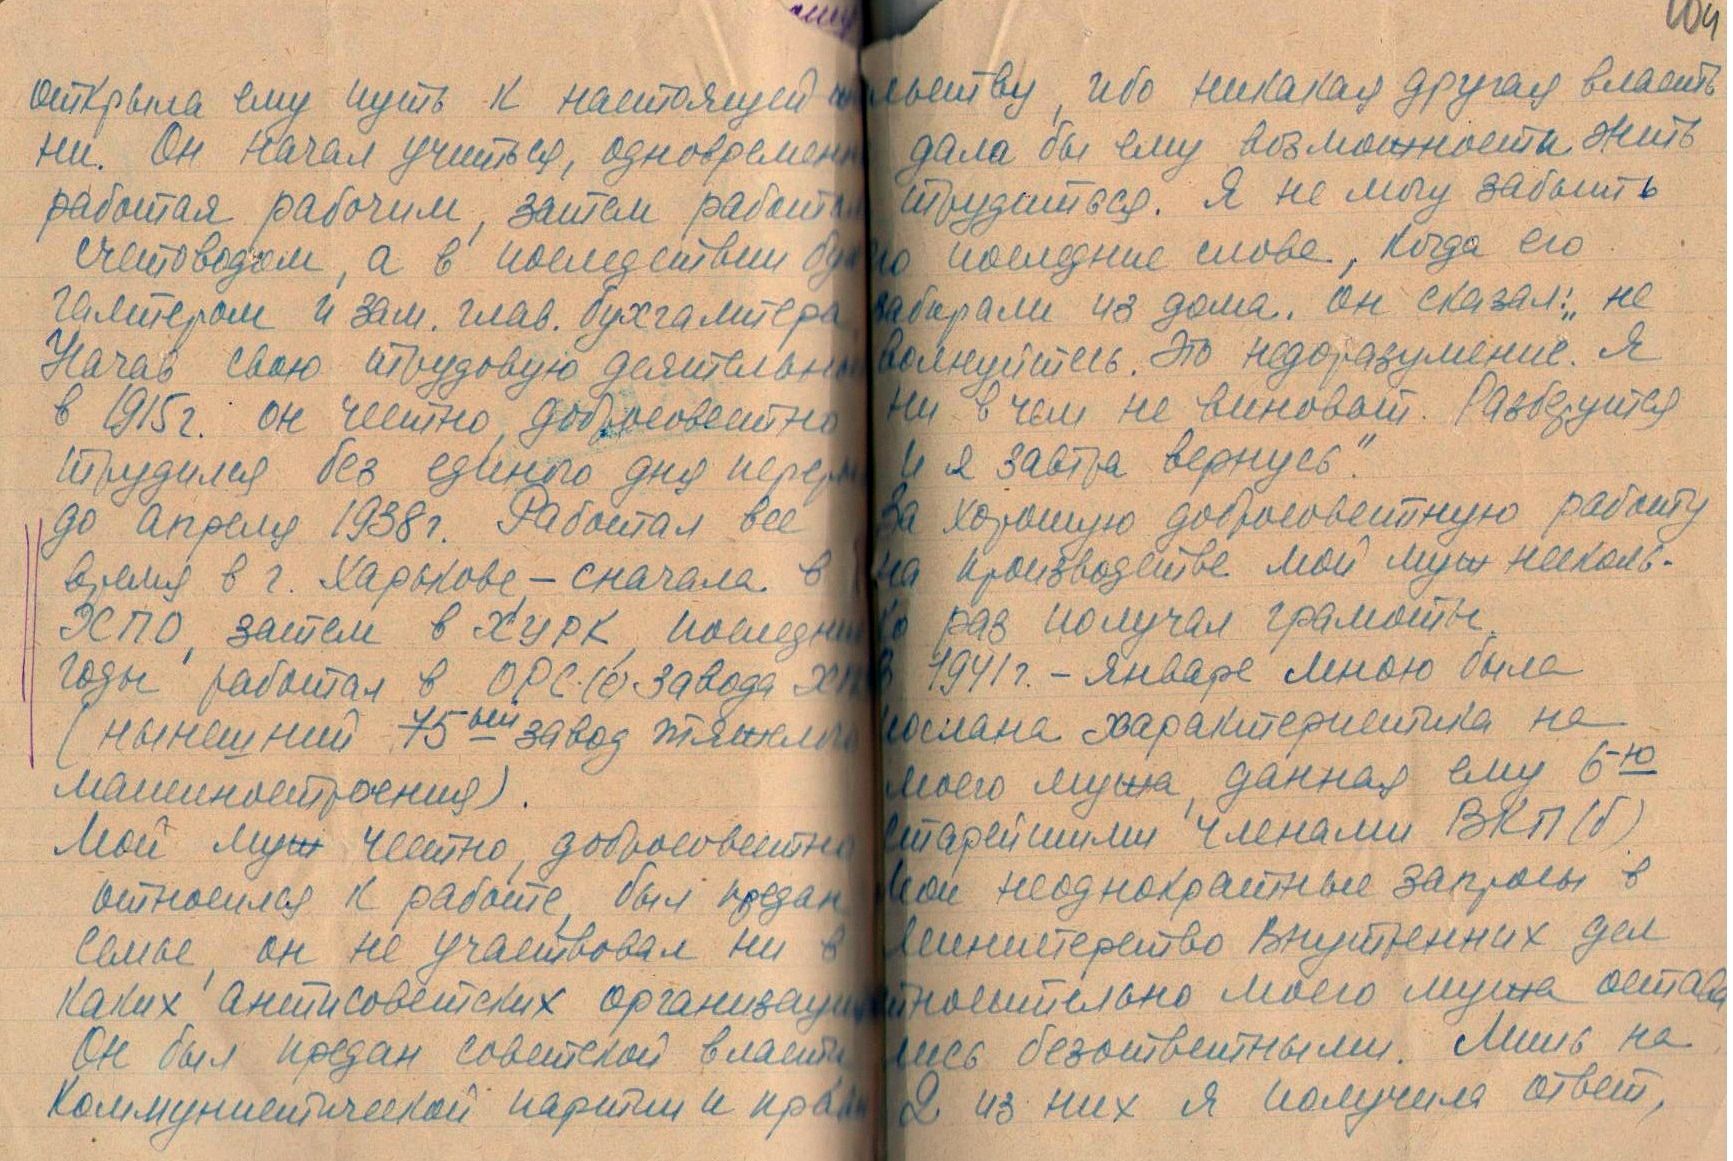 104
открыла ему путь к настоящей
ни. Он начал учиться, одновремен
работая рабочим, затем работал
счетоводом, а в последствии бух
галтером и зам. глав. бухгалтера.
Начав свою трудовую деятельно
в 1915г. он честно, добросовестно
трудился без единого дня перер
до апреля 1938г. Работал все
время в г. Харькове – сначала в
ХСПО, затем в ХУРК, последни
годы работал в ОРС(е) завода ХП
(нынешний 75ый завод тяжелого
машиностроения).
Мой муж честно, добросовестно
относился к работе, был предан
семье, он не участвовал ни в
каких антисоветских организаци
Он был предан советской власти
Коммунистической партии и прави
льству, ибо никакая другая власть
дала бы ему возможности жить
трудиться. Я не могу забыть
го последние слова, когда его
забирали из дома. он сказал: „не
волнуйтесь. Это недоразумение. Я
ни в чем не виноват. Разберутся
и я завтра вернусь".
За хорошую добросовестную работу
на производстве мой муж несколь-
ко раз получал грамоты.
В 1941г. – январе мною была
послана характеристика на
моего мужа, данная ему 6-ю
старейшими членами ВКП(б)
Мои неоднократные запросы в
Министерство Внутренних дел
относительно моего мужа остава
лись безответными. Лишь на
2 из них я получила ответ,